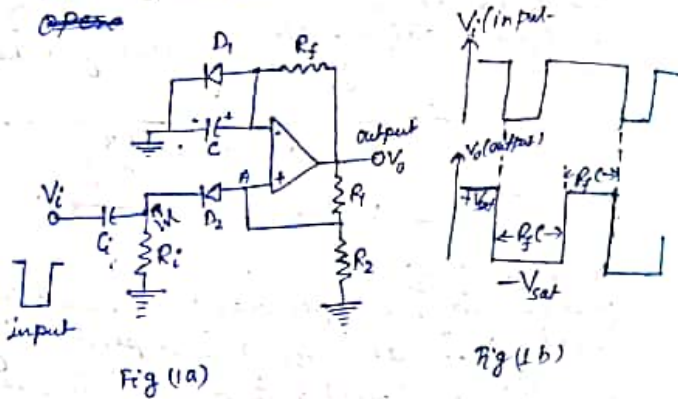 D₁
R_f
- +
C
-
+
A
output
V₀
V_i
C_i
D₂
R₁
R_i
R₂
input
Fig (1a)
V_i (input-
V₀ (output)
+V_sat
R_f C
R_f C
-V_sat
Fig (1b)